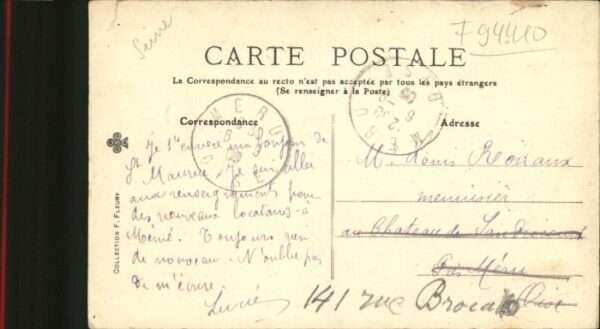 Seine
F94410
CARTE POSTALE
La Correspondance au recto n'est pas acceptée par tous les pays étrangers
(Se renseigner à la Poste)
Correspondance
Adresse
Je t'envoie un bonjour de
St Maurice. Je suis aller
aux renseignements pour
des nouveaux locatans a
Mémé. Toujours rien
de nouveau. N'oublie pas
de m'écrire.
Lucie
M. Louis
menuisier
au Chateau de
Méru
Oise
141 rue Broca
COLLECTION F. FLEURY